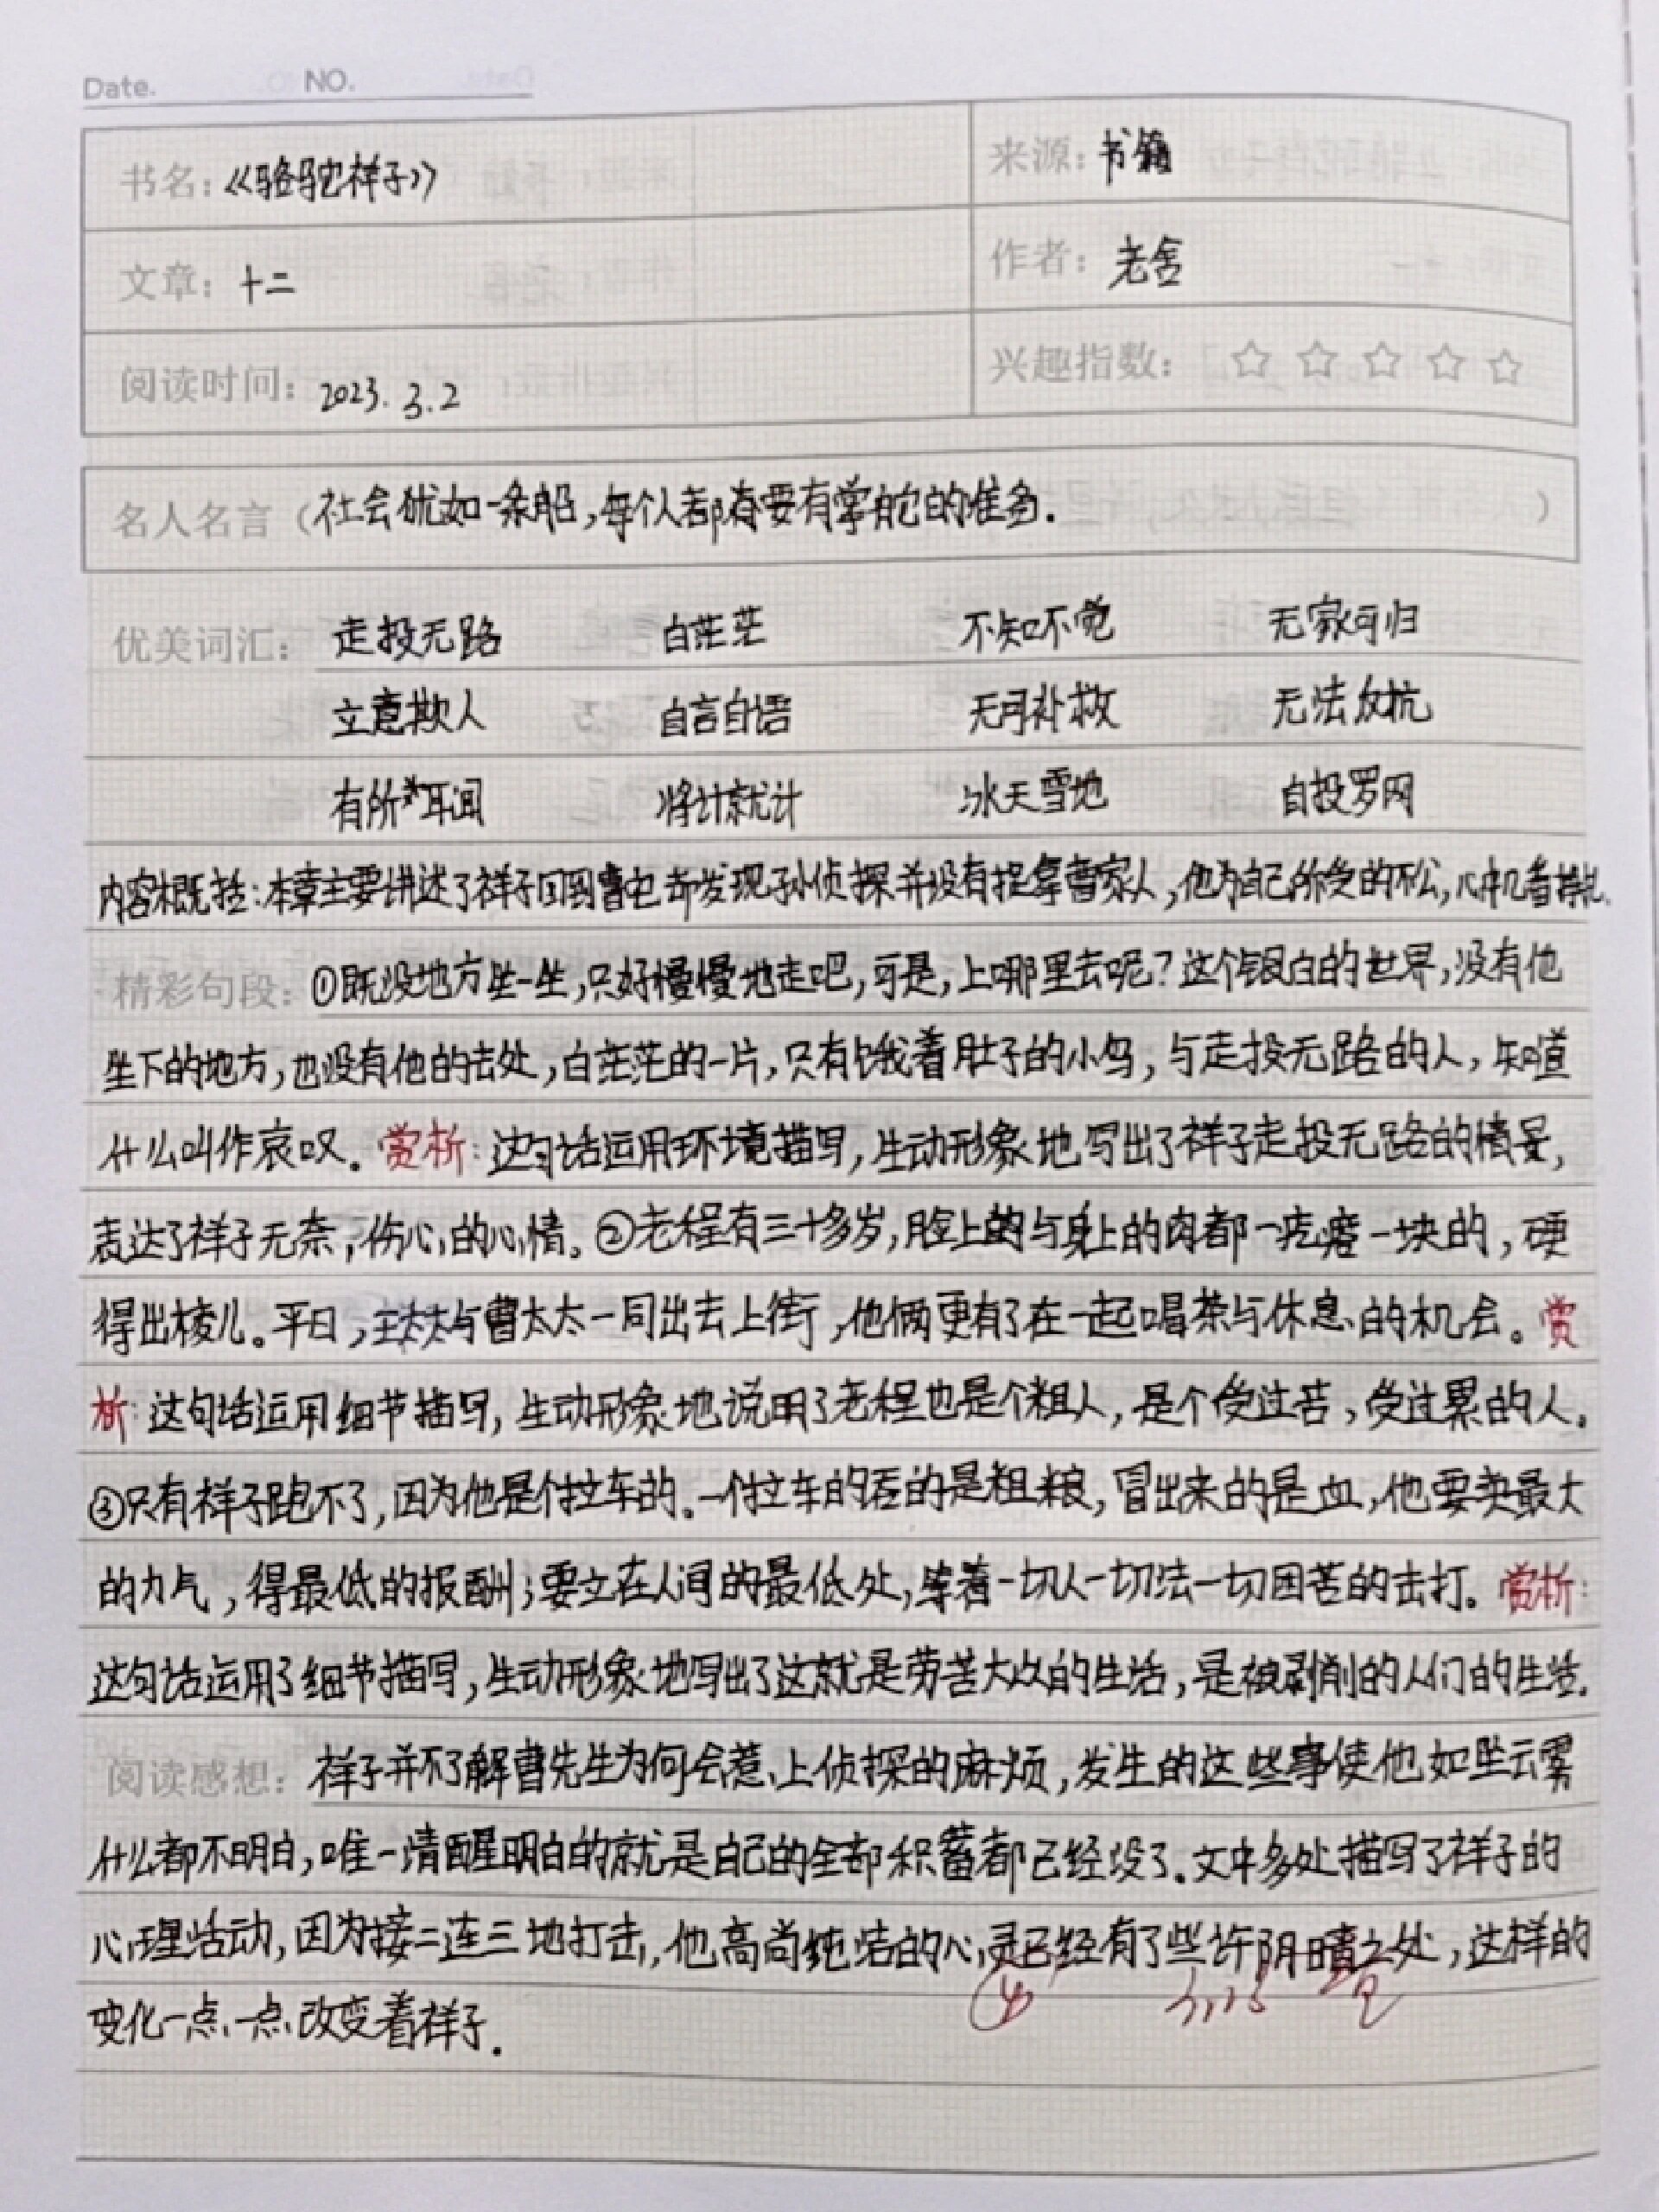 Date. NO.
书名：《骆驼祥子》 来源：书籍
文章：十二 作者：老舍
阅读时间：2023.3.2 兴趣指数：☆ ☆ ☆ ☆ ☆
名人名言（社会犹如一条船，每个人都有要有掌舵的准备.）
优美词汇：走投无路 白茫茫 不知不觉 无家可归
立意欺人 自言自语 无可补救 无法反抗
有所耳闻 将计就计 冰天雪地 自投罗网
内容概括：本章主要讲述了祥子回到曹宅却发现孙侦探并没有捉拿曹家人，他为自己所受的不公，心中几番挣扎.
精彩句段：①既没地方坐一坐，只好慢慢地走吧，可是，上哪里去呢？这个银白的世界，没有他
坐下的地方，也没有他的去处，白茫茫的一片，只有饿着肚子的小鸟，与走投无路的人，知道
什么叫作哀叹。赏析：这句话运用环境描写，生动形象地写出了祥子走投无路的情景，
表达了祥子无奈，伤心的心情。②老程有三十多岁，脸上的与身上的肉都一疙瘩一块的，硬
得出棱儿。平日，王太太与曹太太一同出去上街，他俩更有了在一起喝茶与休息的机会。赏
析：这句话运用细节描写，生动形象地说明了老程也是个粗人，是个受过苦，受过累的人。
③只有祥子跑不了，因为他是个拉车的。一个拉车的吞的是粗粮，冒出来的是血，他要卖最大
的力气，得最低的报酬；要立在人间的最低处，等着一切人一切法一切困苦的击打。赏析：
这句话运用了细节描写，生动形象地写出了这就是劳苦大众的生活，是被剥削的人们的生活.
阅读感想：祥子并不了解曹先生为何会惹上侦探的麻烦，发生的这些事使他如坠云雾
什么都不明白，唯一清醒明白的就是自己的全部积蓄都已经没了.文中多处描写了祥子的
心理活动，因为接二连三地打击，他高尚纯洁的心灵已经有了些许阴晴之处，这样的
变化一点一点改变着祥子.